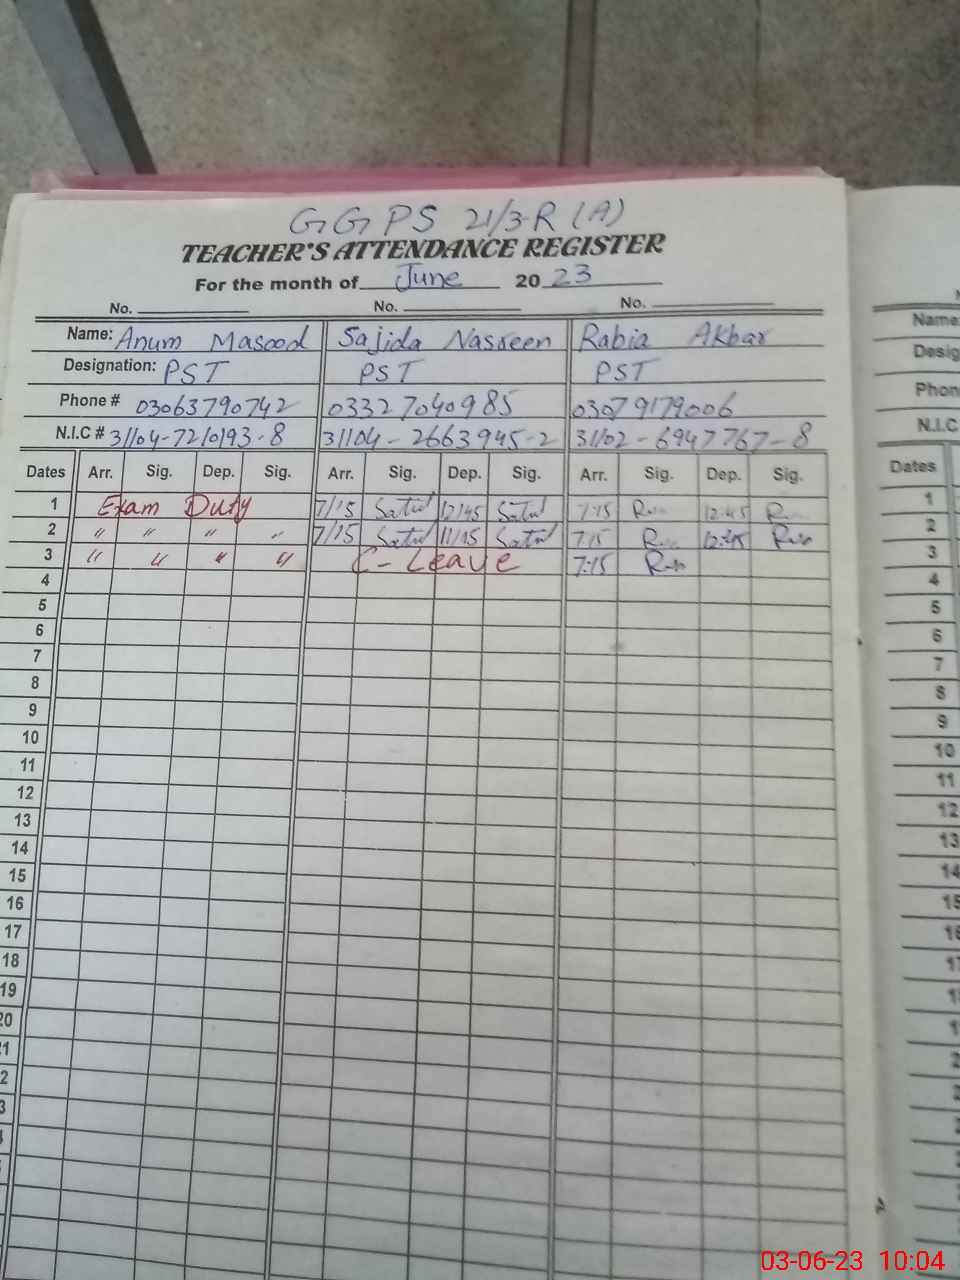 GGPS 21/3-R (A)
TEACHER'S ATTENDANCE REGISTER
For the month of June 2023
No. No. No.
Name: Anum Masood Sajida Nasreen Rabia Akbar
Designation: PST PST PST
Phone # 03063790742 03327040985 03079179006
N.I.C # 31104-7210193-8 31104-2663945-2 31102-6947767-8
Dates Arr. Sig. Dep. Sig. Arr. Sig. Dep. Sig. Arr. Sig. Dep. Sig.
1 Exam Duty 7/15 12/45 7:15 12:45
2 " " " " 7/15 11/15 7:15 12:45
3 " " " " C-Leave 7:15
4
5
6
7
8
9
10
11
12
13
14
15
16
17
18
19
20
Name
Desig
Phon
N.I.C
Dates
1
2
3
4
5
6
7
8
9
10
11
12
13
14
15
03-06-23 10:04